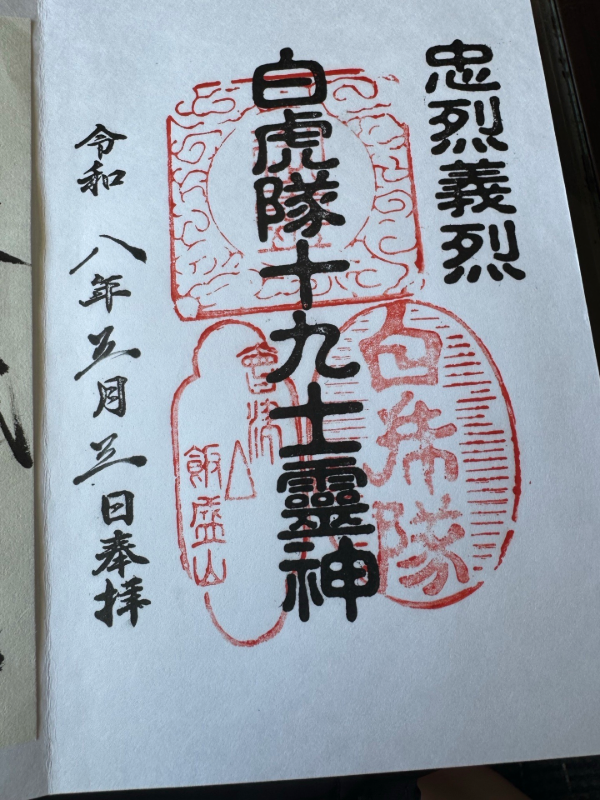 忠烈義烈
白虎隊十九士靈神
令和 八年五月五日奉拝
白乕隊
會津
飯盛山